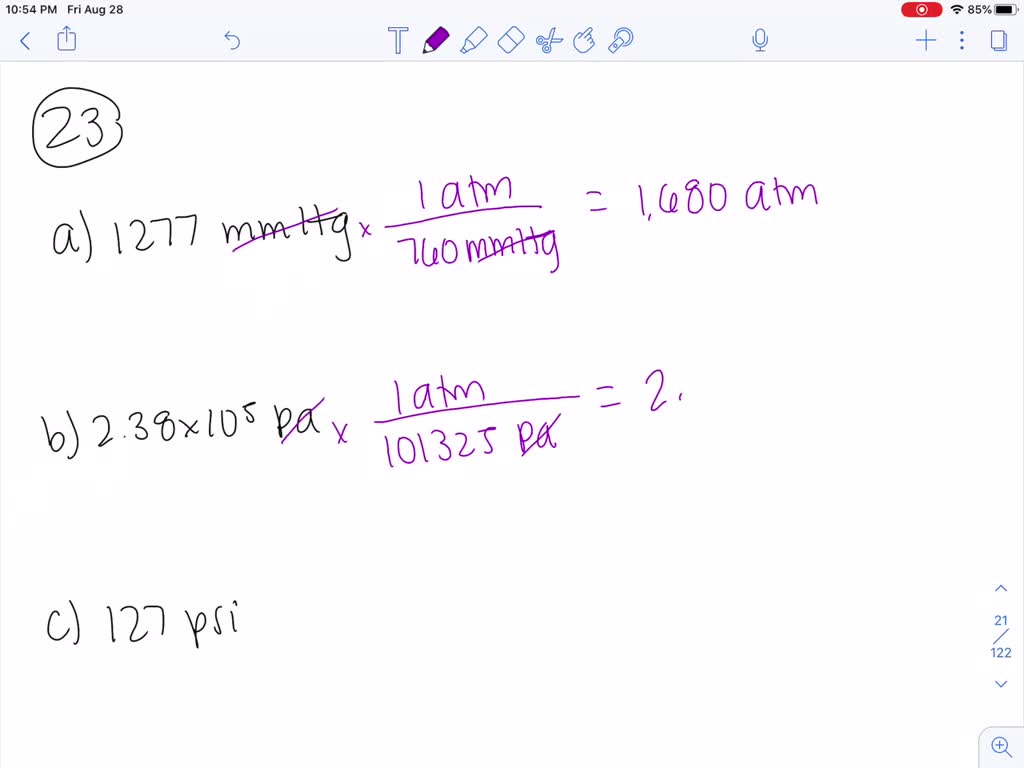 10:54 PM Fri Aug 28
85%
T
23
a) 1277 mmHg x 1 atm / 760 mmHg = 1.680 atm
b) 2.38x10⁵ pa x 1 atm / 101325 pa = 2.
c) 127 psi
21
122